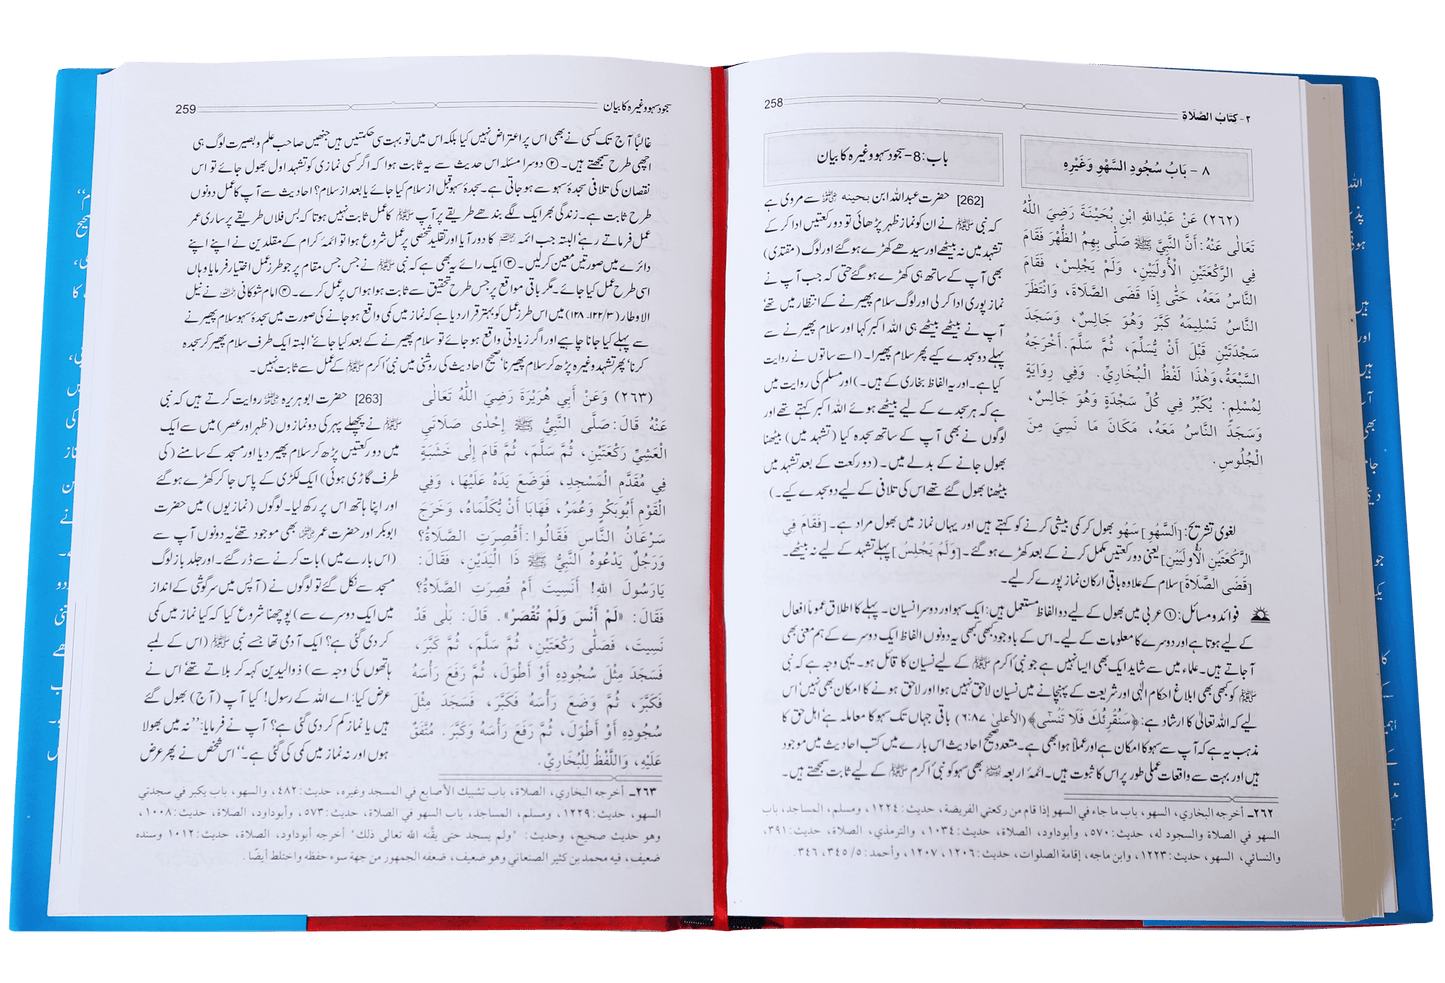 258
۲- كتاب الصَّلَاة
٨ - بَابُ سُجُودِ السَّهْوِ وَغَيْرِهِ
(٢٦٢) عَنْ عَبْدِاللهِ ابْنِ بُحَيْنَةَ رَضِيَ اللهُ
تَعَالَى عَنْهُ: أَنَّ النَّبِيَّ ﷺ صَلَّى بِهِمُ الظُّهْرَ فَقَامَ
فِي الرَّكْعَتَيْنِ الْأُولَيَيْنِ، وَلَمْ يَجْلِسْ، فَقَامَ
النَّاسُ مَعَهُ، حَتَّى إِذَا قَضَى الصَّلَاةَ، وَانْتَظَرَ
النَّاسُ تَسْلِيمَهُ كَبَّرَ وَهُوَ جَالِسٌ، وَسَجَدَ
سَجْدَتَيْنِ قَبْلَ أَنْ يُسَلِّمَ، ثُمَّ سَلَّمَ. أَخْرَجَهُ
السَّبْعَةُ، وَهٰذَا لَفْظُ الْبُخَارِيِّ. وَفِي رِوَايَةٍ
لِمُسْلِمٍ: يُكَبِّرُ فِي كُلِّ سَجْدَةٍ وَهُوَ جَالِسٌ،
وَسَجَدَ النَّاسُ مَعَهُ، مَكَانَ مَا نَسِيَ مِنَ
الْجُلُوسِ.
باب:8- سجود سہو وغیرہ کا بیان
[262] حضرت عبداللہ ابن بحینہ ؓ سے مروی ہے
کہ نبی ﷺ نے ان کو نماز ظہر پڑھائی تو دو رکعتیں ادا کر کے
تشہد میں نہ بیٹھے اور سیدھے کھڑے ہو گئے اور لوگ (مقتدی)
بھی آپ کے ساتھ ہی کھڑے ہو گئے حتی کہ جب آپ نے
نماز پوری ادا کر لی اور لوگ سلام پھیرنے کے انتظار میں تھے
آپ نے بیٹھے بیٹھے ہی اللہ اکبر کہا اور سلام پھیرنے سے
پہلے دو سجدے کیے پھر سلام پھیرا۔ (اسے ساتوں نے روایت
کیا ہے۔ اور یہ الفاظ بخاری کے ہیں۔) اور مسلم کی روایت میں
ہے کہ ہر سجدے کے لیے بیٹھے ہوئے اللہ اکبر کہتے تھے اور
لوگوں نے بھی آپ کے ساتھ سجدہ کیا (تشہد میں) بیٹھنا
بھول جانے کے بدلے میں۔ (دو رکعت کے بعد تشہد میں
بیٹھنا بھول گئے تھے اس کی تلافی کے لیے دو سجدے کیے۔)
لغوی تشریح: [اَلسَّهْوِ] سہو بھول کر کمی بیشی کرنے کو کہتے ہیں اور یہاں نماز میں بھول مراد ہے۔ [فَقَامَ فِي
الرَّكْعَتَيْنِ الْأُولَيَيْنِ] یعنی دو رکعتیں مکمل کرنے کے بعد کھڑے ہو گئے۔ [وَلَمْ يَجْلِسْ] پہلے تشہد کے لیے نہ بیٹھے۔
[قَضَى الصَّلَاةَ] سلام کے علاوہ باقی ارکان نماز پورے کر لیے۔
فوائد و مسائل: ① عربی میں بھول کے لیے دو الفاظ مستعمل ہیں: ایک سہو اور دوسرا نسیان۔ پہلے کا اطلاق عموماً افعال
کے لیے ہوتا ہے اور دوسرے کا معلومات کے لیے۔ اس کے باوجود کبھی کبھی یہ دونوں الفاظ ایک دوسرے کے ہم معنی بھی
آ جاتے ہیں۔ علماء میں سے شاید ایک بھی ایسا نہیں ہے جو نبی اکرم ﷺ کے لیے نسیان کا قائل ہو۔ یہی وجہ ہے کہ نبی
ﷺ کو کبھی بھی ابلاغ احکام الٰہی اور شریعت کے پہنچانے میں نسیان لاحق نہیں ہوا اور لاحق ہونے کا امکان بھی نہیں اس
لیے کہ اللہ تعالیٰ کا ارشاد ہے: ﴿سَنُقْرِئُكَ فَلَا تَنْسٰى﴾ (الأعلىٰ ۸۷:۶) باقی جہاں تک سہو کا معاملہ ہے اہل حق کا
مذہب یہ ہے کہ آپ سے سہو کا امکان ہے اور عملاً ہوا بھی ہے۔ متعدد صحیح احادیث اس بارے میں کتب احادیث میں موجود
ہیں اور بہت سے واقعات عملی طور پر اس کا ثبوت ہیں۔ ائمۂ اربعہ بھی سہو کو نبی ٔاکرم ﷺ کے لیے ثابت سمجھتے ہیں۔
٢٦٢ـ أخرجه البخاري، السهو، باب ما جاء في السهو إذا قام من ركعتي الفريضة، حديث: ١٢٢٤، ومسلم، المساجد، باب
السهو في الصلاة والسجود له، حديث: ٥٧٠، وأبوداود، الصلاة، حديث: ١٠٣٤، والترمذي، الصلاة، حديث: ٣٩١،
والنسائي، السهو، حديث: ١٢٢٣، وابن ماجه، إقامة الصلوات، حديث: ١٢٠٦، ١٢٠٧، وأحمد: ٥/ ٣٤٥، ٣٤٦.
سجود سہو وغیرہ کا بیان
259
غالباً آج تک کسی نے بھی اس پر اعتراض نہیں کیا بلکہ اس میں تو بہت سی حکمتیں ہیں جنھیں صاحب علم و بصیرت لوگ ہی
اچھی طرح سمجھتے ہیں۔ ② دوسرا مسئلہ اس حدیث سے یہ ثابت ہوا کہ اگر کسی نمازی کو تشہد اول بھول جائے تو اس
نقصان کی تلافی سجدۂ سہو سے ہو جاتی ہے۔ سجدۂ سہو قبل از سلام کیا جائے یا بعد از سلام؟ احادیث سے آپ کا عمل دونوں
طرح ثابت ہے۔ زندگی بھر ایک لگے بندھے طریقے پر آپ ﷺ کا عمل ثابت نہیں ہوتا کہ بس فلاں طریقے پر ساری عمر
عمل فرماتے رہے‘ البتہ جب ائمہ کا دور آیا اور تقلید شخصی پر عمل شروع ہوا تو ائمہ کرام کے مقلدین نے اپنے اپنے
دائرے میں صورتیں معین کر لیں۔ ③ ایک رائے یہ بھی ہے کہ نبی ﷺ نے جس جس مقام پر جو طرز عمل اختیار فرمایا وہاں
اسی طرح عمل کیا جائے۔ مگر باقی مواقع پر جس طرح تحقیق سے ثابت ہوا ہو اس پر عمل کرے۔ ④ امام شوکانی نے نیل
الاوطار (۳/ ۱۲۲۔ ۱۲۸) میں اس طرز عمل کو بہتر قرار دیا ہے کہ نماز میں کمی واقع ہو جانے کی صورت میں سجدۂ سہو سلام پھیرنے
سے پہلے کیا جانا چاہیے اور اگر زیادتی واقع ہو جائے تو سلام پھیرنے کے بعد کیا جائے‘ البتہ ایک طرف سلام پھیر کر سجدہ
کرنا‘ پھر تشہد وغیرہ پڑھ کر سلام پھیرنا‘ صحیح احادیث کی روشنی میں نبی اکرم ﷺ کے عمل سے ثابت نہیں۔
(٢٦٣) وَعَنْ أَبِي هُرَيْرَةَ رَضِيَ اللهُ تَعَالَى
عَنْهُ قَالَ: صَلَّى النَّبِيُّ ﷺ إِحْدَى صَلَاتَيِ
الْعَشِيِّ رَكْعَتَيْنِ، ثُمَّ سَلَّمَ، ثُمَّ قَامَ إِلَى خَشَبَةٍ
فِي مُقَدَّمِ الْمَسْجِدِ، فَوَضَعَ يَدَهُ عَلَيْهَا، وَفِي
الْقَوْمِ أَبُوبَكْرٍ وَعُمَرُ، فَهَابَا أَنْ يُكَلِّمَاهُ، وَخَرَجَ
سَرْعَانُ النَّاسِ فَقَالُوا: أَقُصِرَتِ الصَّلَاةُ؟
وَرَجُلٌ يَدْعُوهُ النَّبِيُّ ﷺ ذَا الْيَدَيْنِ، فَقَالَ:
يَارَسُولَ اللهِ! أَنَسِيتَ أَمْ قُصِرَتِ الصَّلَاةُ؟
فَقَالَ: «لَمْ أَنْسَ وَلَمْ تُقْصَرْ». قَالَ: بَلَى قَدْ
نَسِيتَ، فَصَلَّى رَكْعَتَيْنِ، ثُمَّ سَلَّمَ، ثُمَّ كَبَّرَ،
فَسَجَدَ مِثْلَ سُجُودِهِ أَوْ أَطْوَلَ، ثُمَّ رَفَعَ رَأْسَهُ
فَكَبَّرَ، ثُمَّ وَضَعَ رَأْسَهُ فَكَبَّرَ، فَسَجَدَ مِثْلَ
سُجُودِهِ أَوْ أَطْوَلَ، ثُمَّ رَفَعَ رَأْسَهُ وَكَبَّرَ. مُتَّفَقٌ
عَلَيْهِ، وَاللَّفْظُ لِلْبُخَارِيِّ.
[263] حضرت ابوہریرہ ؓ روایت کرتے ہیں کہ نبی
ﷺ نے پچھلے پہر کی دو نمازوں (ظہر اور عصر) میں سے ایک
میں دو رکعتیں پڑھ کر سلام پھیر دیا اور مسجد کے سامنے (کی
طرف گاڑی ہوئی) ایک لکڑی کے پاس جا کر کھڑے ہو گئے
اور اپنا ہاتھ اس پر رکھ لیا۔ لوگوں (نمازیوں) میں حضرت
ابوبکر اور حضرت عمر ؓ بھی موجود تھے‘ یہ دونوں آپ سے
(اس بارے میں) بات کرنے سے ڈر گئے۔ اور جلد باز لوگ
مسجد سے نکل گئے تو لوگوں نے (آپس میں سرگوشی کے انداز
میں ایک دوسرے سے) پوچھنا شروع کیا کہ کیا نماز میں کمی
کر دی گئی ہے؟ ایک آدمی تھا جسے نبی ﷺ (اس کے لمبے
ہاتھوں کی وجہ سے) ذوالیدین کہہ کر بلاتے تھے‘ اس نے
عرض کیا: اے اللہ کے رسول! کیا آپ (آج) بھول گئے
ہیں یا نماز کم کر دی گئی ہے؟ آپ نے فرمایا: ’’نہ میں بھولا
ہوں اور نہ نماز میں کمی کی گئی ہے۔‘‘ اس شخص نے پھر عرض
٢٦٣ـ أخرجه البخاري، الصلاة، باب تشبيك الأصابع في المسجد وغيره، حديث: ٤٨٢، والسهو، باب يكبر في سجدتي
السهو، حديث: ١٢٢٩، ومسلم، المساجد، باب السهو في الصلاة والسجود له، حديث: ٥٧٣، وأبوداود، الصلاة، حديث: ١٠٠٨،
وهو حديث صحيح، وحديث: "ولم يسجد حتى يقنه الله تعالى ذلك" أخرجه أبوداود، الصلاة، حديث: ١٠١٢ وسنده
ضعيف، فيه محمد بن كثير الصنعاني وهو ضعيف، ضعفه الجمهور من جهة سوء حفظه واختلط أيضًا.